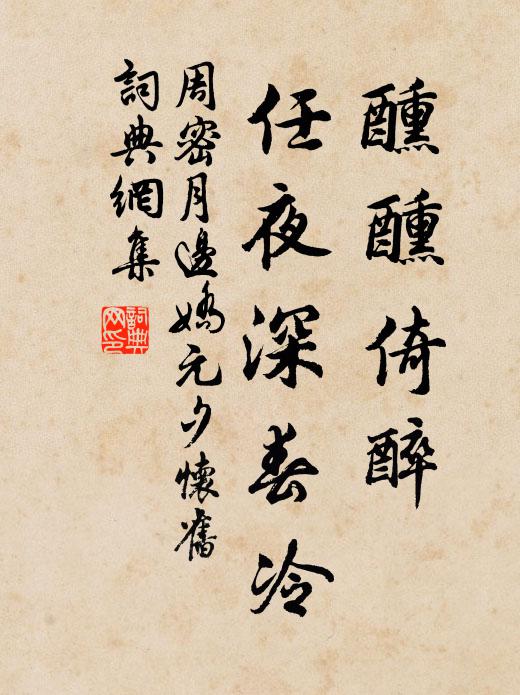 醺醺倚醉
任夜深春冷
周密月邊嬌元夕懷舊
詞典網集
詞典網印